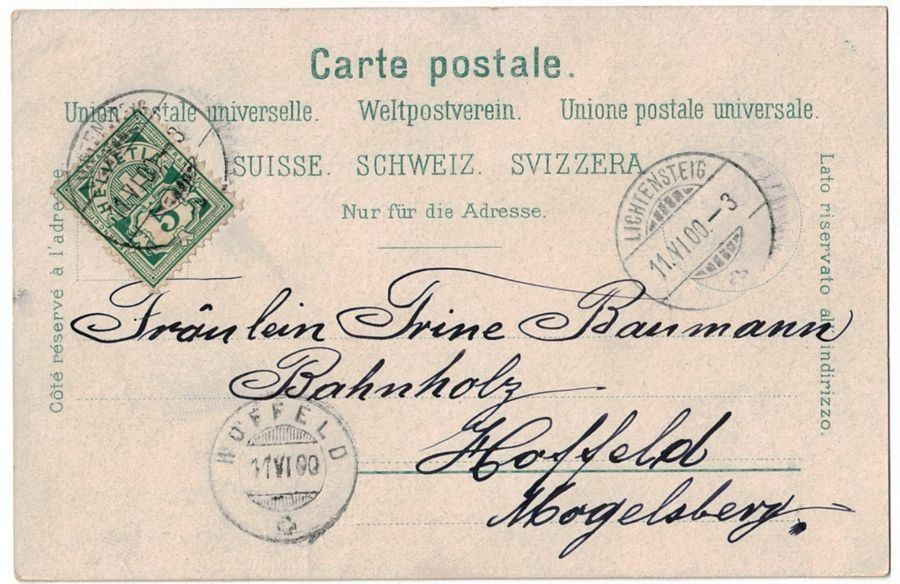 Carte postale.
Union postale universelle. Weltpostverein. Unione postale universale.
SUISSE. SCHWEIZ. SVIZZERA
Nur für die Adresse.
Côté réservé à l'adresse
Lato riservato all'indirizzo.
HELVETIA
5
LICHTENSTEIG
11.VI.00.-3
Fräulein Trine Baumann
Bahnholz
Hoffeld
Mogelsberg.
HOFFELD
11 VI 00